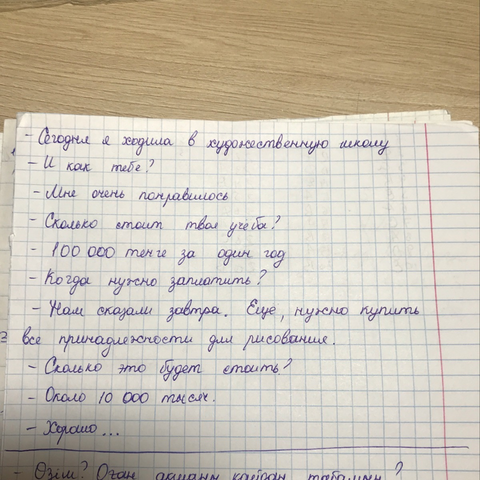 - Сегодня я ходила в художественную школу
- И как тебе?
- Мне очень понравилось
- Сколько стоит твоя учеба?
- 100 000 тенге за один год
- Когда нужно заплатить?
- Нам сказали завтра. Еще, нужно купить
все принадлежности для рисования.
- Сколько это будет стоить?
- Около 10 000 тысяч.
- Хорошо...
- Өзім? Оған ақшаны қайдан табамын?